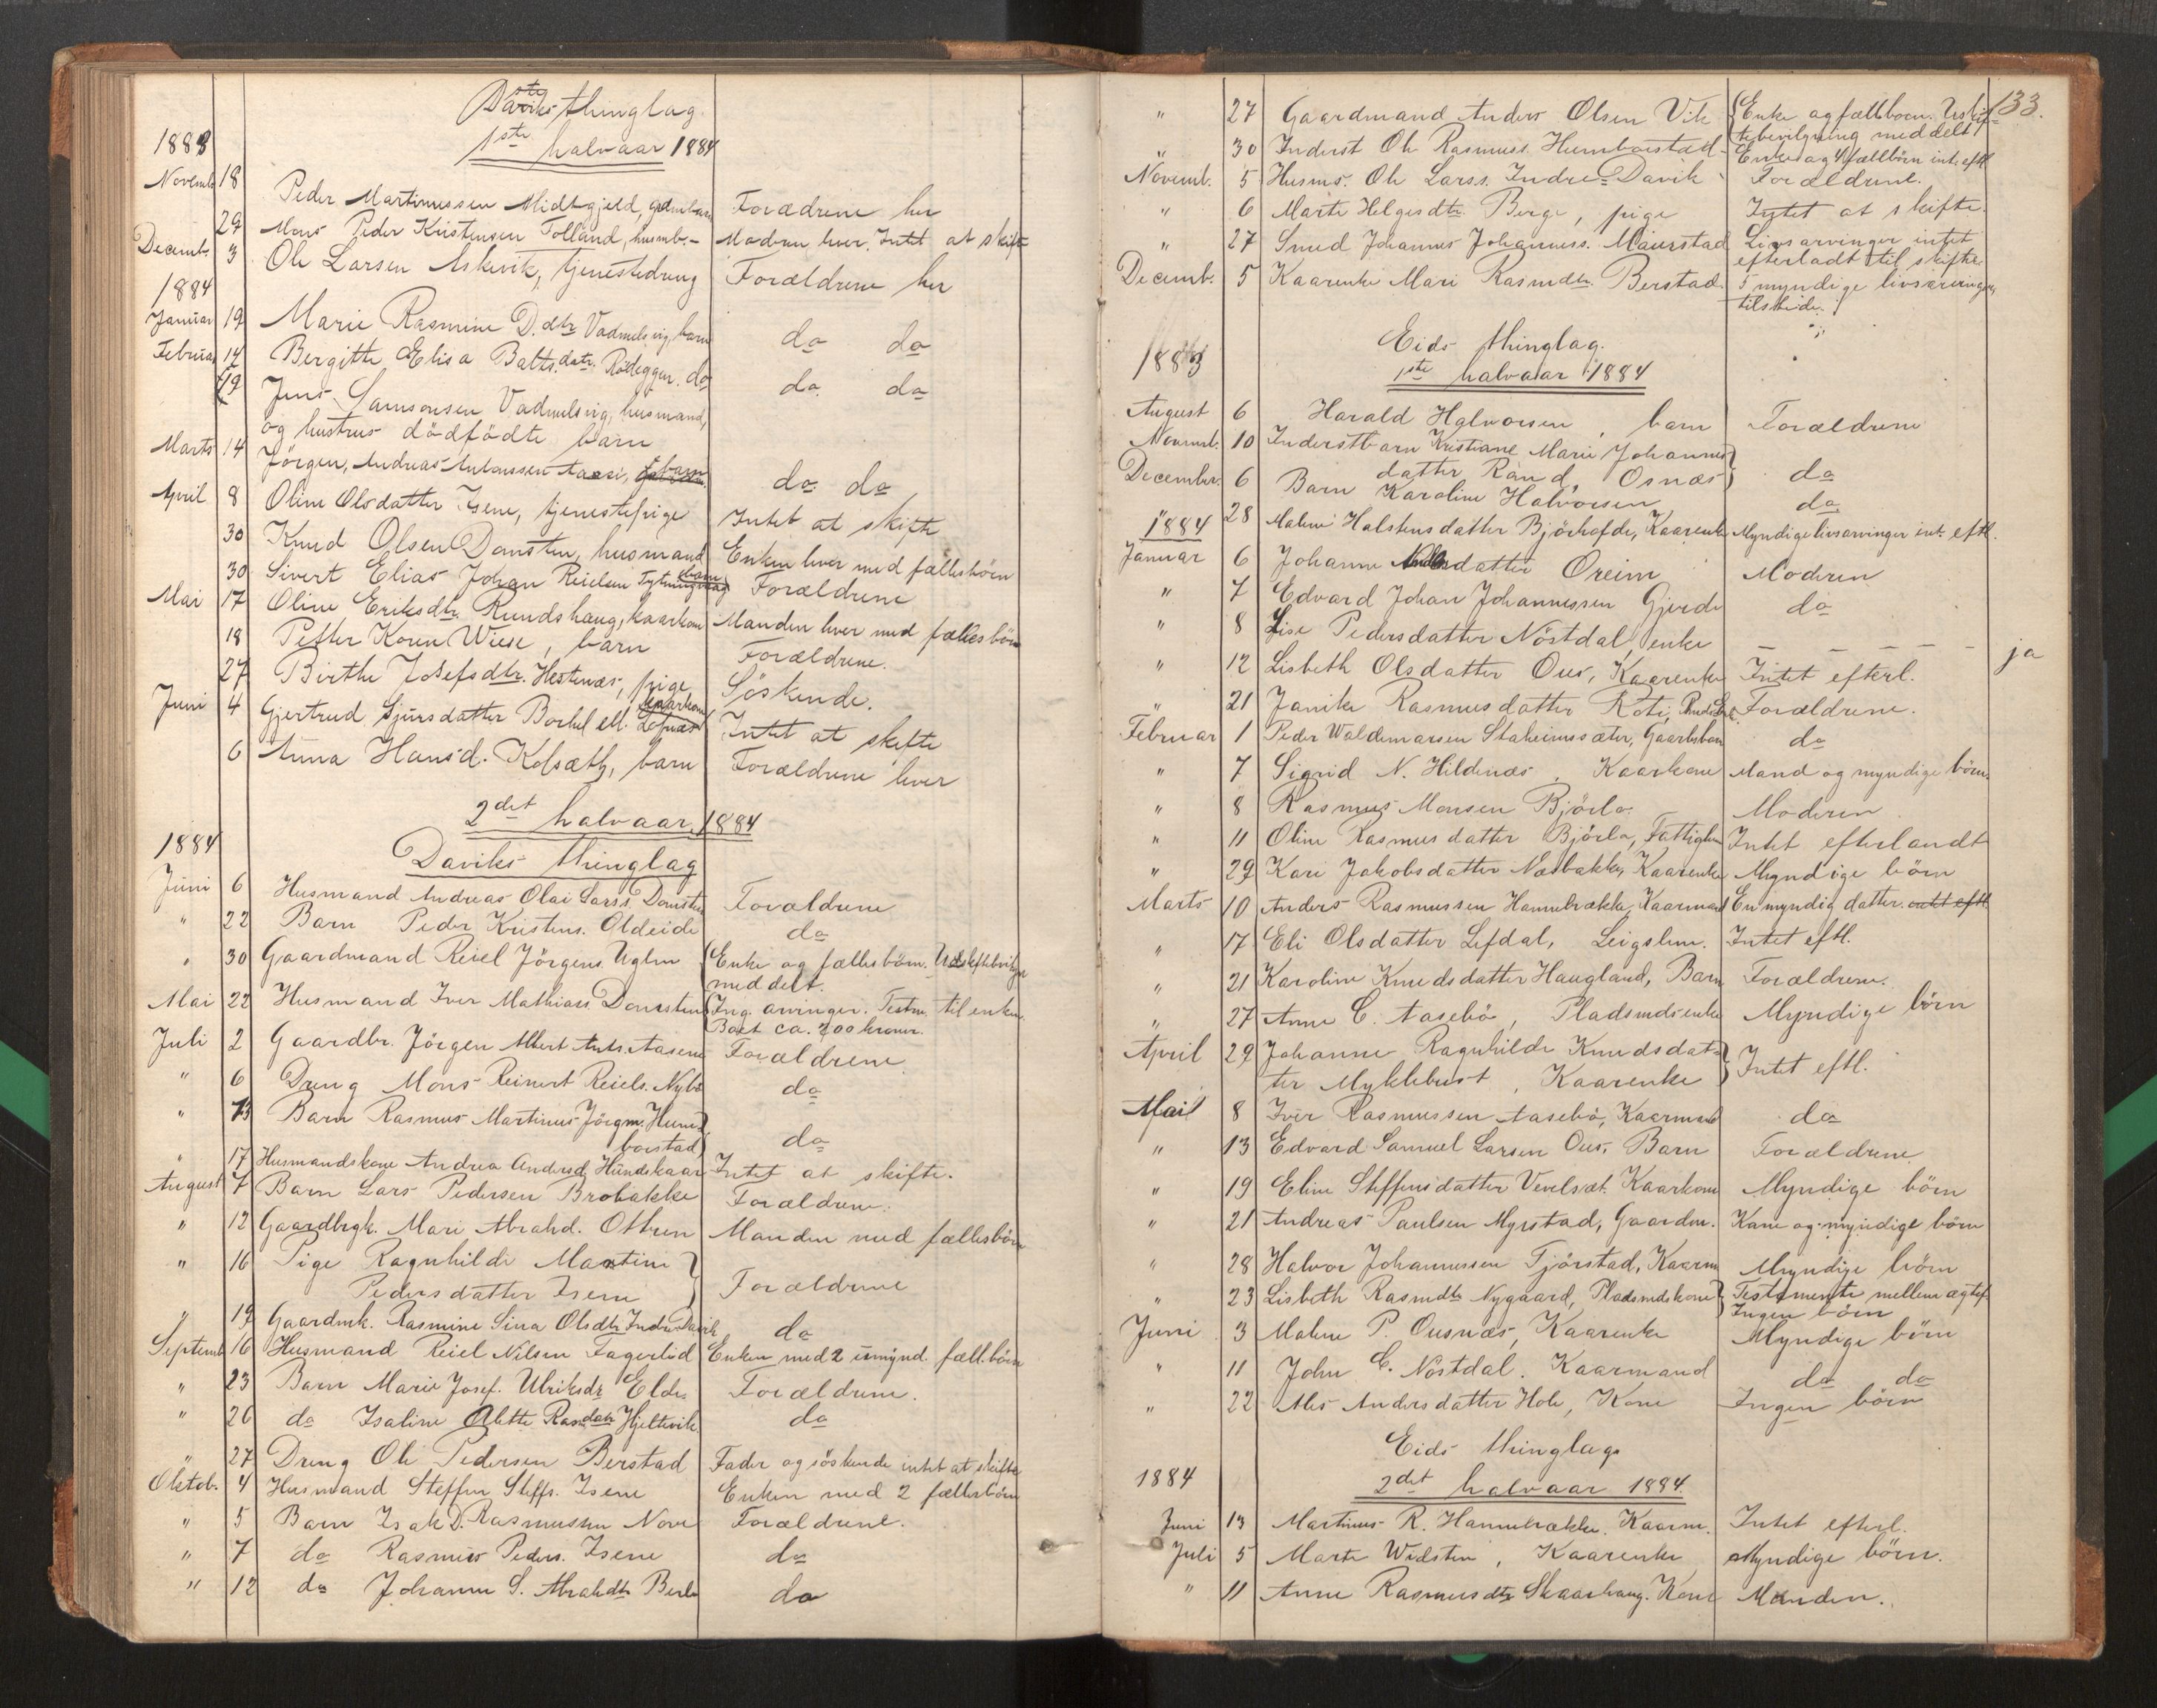 Daviks thinglag.
1ste halvaar 1884
1883
Novemb. 18 Peder Martinussen Midtgjeld, gdmbarn Forædrene her
29 Mons Peder Kristensen Tolland, husmb. - Modren lever. Intet at skifte
Decemb. 3 Ole Larsen Askevik, tjenestedreng Forældrene her
1884
Januar 19 Marie Rasmine D.dtr Vadmelsvig, barn do do
Februar 14 Bergitte Elisa Balts.datr. Rødeggen. do do do
19 Jens Samsonsen Vadmelsvig, husmand,
og hustrus dødfødte barn
Marts 14 Jörgen, Andreas Antonssen Aasi, do do
April 8 Oline Olsdatter Isene, tjenestepige Intet at skifte
30 Knud Olsen Domsten, husmand Enken lever med fællesbörn
30 Sivert Elias Johan Reielsen barn Forældrene
Mai 17 Oline Eriksdtr. Rundshaug, kaarkone Manden lever med fælles börn
18 Petter Koren Wiese, barn Forældrene.
27 Birthe Josefsdtr. Hestenæs, pige Söskende.
Juni 4 Gjertrud Sjursdatter Borhel ell. Lefnæs kaarkone Intet at skifte
6 Anna Hansd. Kolsæth, barn Forældrene lever
2det halvaar 1884
1884
Daviks thinglag
Juni 6 Husmand Andreas Olai Larss. Domsten Forældrene
" 22 Barn Peder Kristens. Oldeide do
" 30 Gaardmand Reiel Jörgens. Uglen Enke og fællesbörn. Uskiftebevilgn
meddelt.
Mai 22 Husmand Iver Mathiass. Domsten Ing. arvinger. Testm. til enken.
Boet ca. 700 kroner.
Juli 2 Gaardbr. Jörgen Albert Ants. Aasene Forældrene
" 6 Dreng Mons Reinert Reiels. Nybø do
" 13 Barn Rasmus Martinus Jörgen. Hum-
borstad do
" 17 Husmandskone Andrea Andersd. Hundskaar Intet at skifte.
August 7 Barn Lars Pedersen Brobakke Forældrene.
" 12 Gaardbrgk. Mari Abrahd. Otteren Manden med fællesbörn
" 16 Pige Ragnhilde Martine
Pedersdatter Isene Forældrene
" 19 Gaardmk. Rasmine Sina Olsdtr Indre Davik do
Septemb. 16 Husmand Reiel Nilsen Fagerlid Enken med 2 umynd. fæll.börn
" 23 Barn Marie Josef. Ulriksdr. Elde Forældrene.
" 26 do Isaline Alette Rasdatr Hjeltevik do
" 27 Dreng Ole Pedersen Berstad Fader og söskende intet at skifte
Oktob. 4 Husmand Steffen Steffs. Isene Enken med 2 fællesbörn
" 5 Barn Isak D. Rasmussen Nove Forældrene.
" 7 do Rasmus Peders. Isene do
" 12 do Johanne S. Abrahdtr Berle do
133.
" 27 Gaardmand Anders Olsen Vik Enke og fællbörn. Uskif-
tebevilgning meddelt
" 30 Inderst Ole Rasmuss. Humborstad Enke og 4 fællbörn int. eftl
Novemb. 5 Husms. Ole Larss. Indre-Davik Forældrene.
" 6 Marte Helgesdtr. Berge, pige Intet at skifte.
" 27 Smed Johannes Johanness. Maurstad Livsarvinger intet
efterladt til skifte.
Decemb. 5 Kaarenke Mari Rasmdtr. Berstad 5 myndige livsarvinger,
tilstede.
Eids thinglag.
1883
1ste halvaar 1884
August 6 Harald Halvorsen, barn Forældrene
Novemb. 10 Inderstbarn Kristiane Marie Johannes-
datter Rand, Osnæs do
December. 6 Barn Karoline Halvorsen do
1884
28 Malene Halstensdatter Björhofde, Kaarenke Myndige livsarvinger int. eftl.
Januar 6 Johanne datter Oreim Moderen
" 7 Edvard Johan Johannessen Gjerde do
" 8 Lise Pedersdatter Nöstdal, enke - - - - - ja
" 12 Lisbeth Olsdatter Ous, Kaarenke Intet efterl.
" 21 Janike Rasmusdatter Roti, Forældrene.
Februar 1 Peder Waldemarsen Staheimssæter, Gaardbbarn do
" 7 Sigrid N. Hildenæs, Kaarkone Mand og myndige börn.
" 8 Rasmus Monsen Björlo. Moderen
" 11 Oline Rasmusdatter Björlo, Fattiglem Intet efterlandt
" 29 Kari Jakobsdatter Næsbakke, Kaarenke Myndige börn
Marts 10 Anders Rasmussen Hannebrække, Kaarmand En myndig datter. intet eftl
" 17 Eli Olsdatter Lefdal, Leigslem. Intet eftl.
" 21 Karoline Knudsdatter Haugland, Barn Forældrene.
" 27 Anne C. Aasebö, Pladsmdsenke Myndige börn
April 29 Johanne Ragnhilde Knudsdat-
ter Myklebust, Kaarenke Intet eftl.
Mai 8 Iver Rasmussen Aasebö, Kaarmand do
" 13 Edvard Samuel Larsen Ous, Barn Forældrene
" 19 Eline Steffensdatter Vevelsæt. Kaarkone Myndige börn
" 21 Andreas Paulsen Myrstad, Gaardm. Kone og myndige börn
" 28 Halvor Johannessen Tjörstad, Kaarm Myndige börn
" 23 Lisbeth Rasmdtr Nygaard, Pladsmdskone Testamente mellem ægtef
Ingen börn
Juni 3 Malene P. Ousnæs, Kaarenke Myndige börn
" 11 John E. Nöstdal. Kaarmand do do
" 22 Ales Andersdatter Hole, Kone Ingen börn
Eids thinglag
1884
2det halvaar 1884.
Juni 13 Martinus R. Hannebrække. Kaarm. Intet efterl.
Juli 5 Marte Wedsten, Kaarenke Myndige börn.
" 11 Anne Rasmusdtr Skaarhaug. Kone Manden.